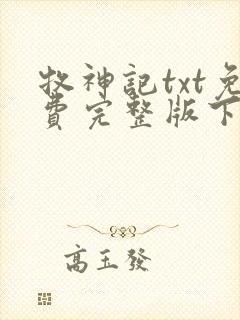 牧神記txt免
費完整版下
高玉發